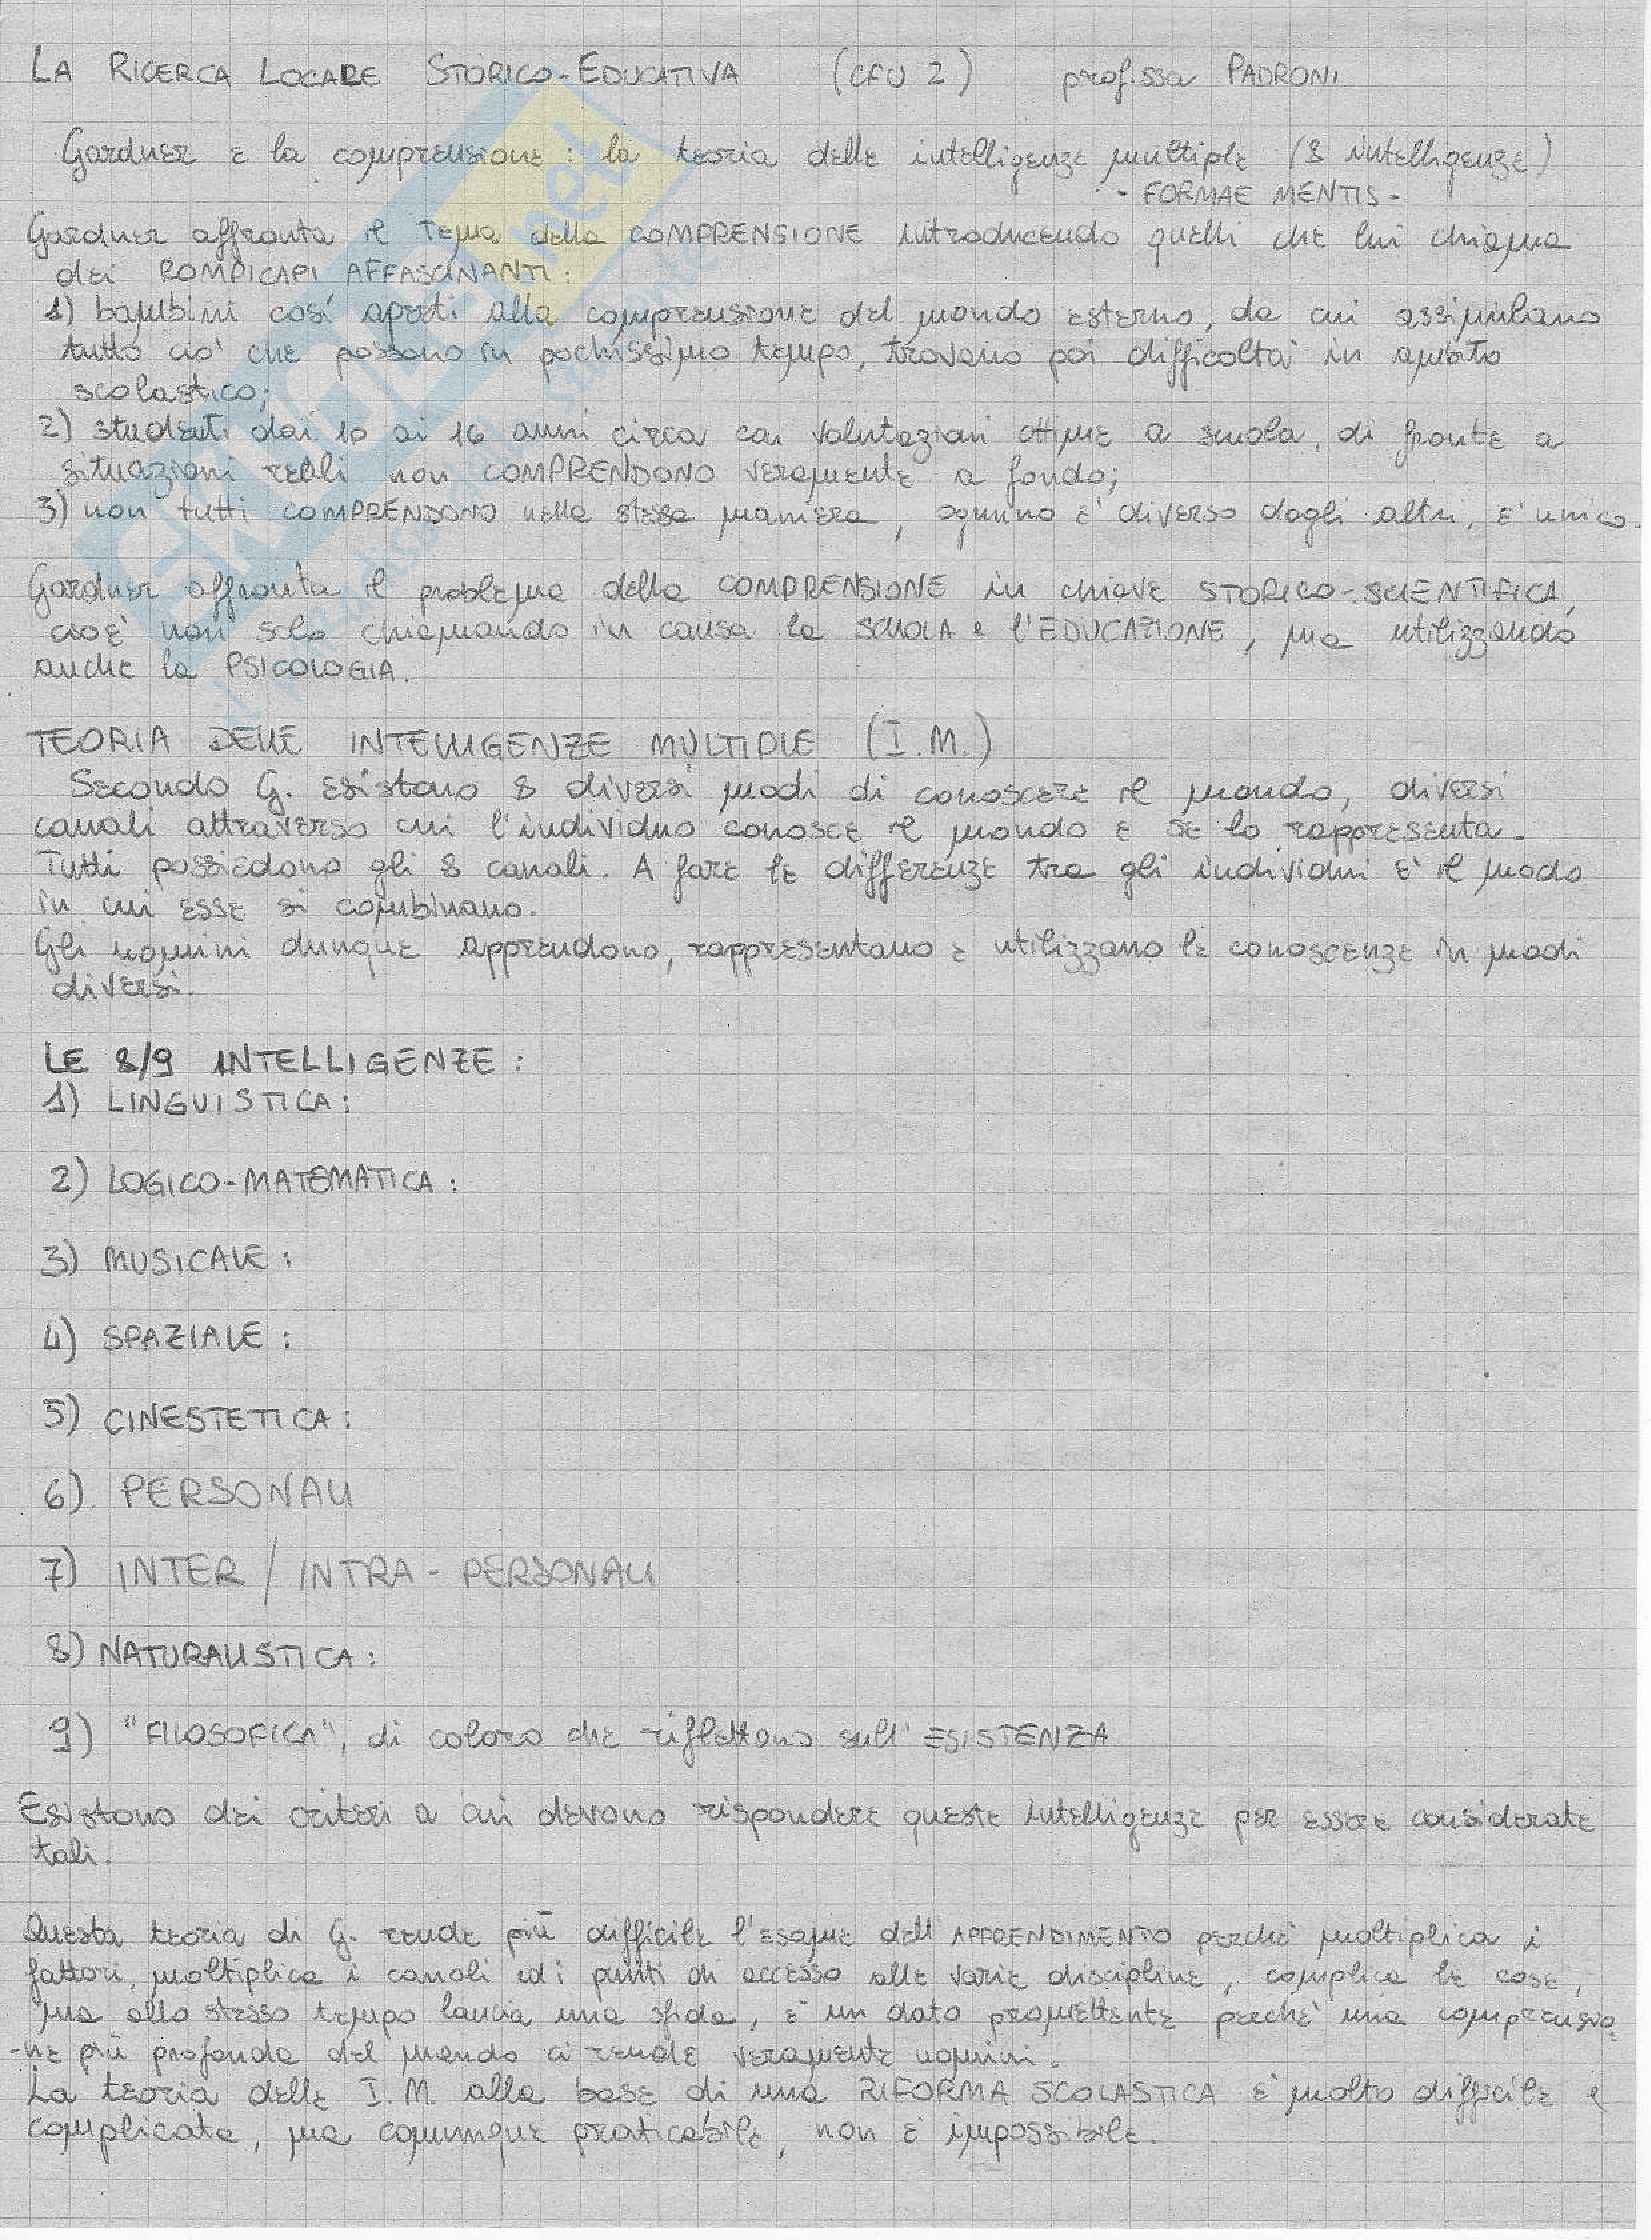 LA RICERCA LOCALE STORICO-EDUCATIVA (CFU 2) prof.ssa PADRONI
Gardner e la comprensione: la teoria delle intelligenze multiple (8 intelligenze)
- FORMAE MENTIS -
Gardner affronta il tema della COMPRENSIONE introducendo quelli che lui chiama
dei ROMPICAPI AFFASCINANTI:
1) bambini così aperti alla comprensione del mondo esterno, da cui assimilano
tutto ciò che possono in pochissimo tempo, trovano poi difficoltà in ambito
scolastico;
2) studenti dai 10 ai 16 anni circa con valutazioni ottime a scuola, di fronte a
situazioni reali non COMPRENDONO veramente a fondo;
3) non tutti COMPRENDONO nella stessa maniera, ognuno è diverso dagli altri, è unico.
Gardner affronta il problema della COMPRENSIONE in chiave STORICO-SCIENTIFICA,
cioè non solo chiamando in causa la SCUOLA e l'EDUCAZIONE, ma utilizzando
anche la PSICOLOGIA.
TEORIA DELLE INTELLIGENZE MULTIPLE (I.M.)
Secondo G. esistono 8 diversi modi di conoscere il mondo, diversi
canali attraverso cui l'individuo conosce il mondo e se lo rappresenta.
Tutti possiedono gli 8 canali. A fare le differenze tra gli individui è il modo
in cui esse si combinano.
Gli uomini dunque apprendono, rappresentano e utilizzano le conoscenze in modi
diversi.
LE 8/9 INTELLIGENZE:
1) LINGUISTICA:
2) LOGICO-MATEMATICA:
3) MUSICALE:
4) SPAZIALE:
5) CINESTETICA:
6) PERSONALI
7) INTER / INTRA - PERSONALI
8) NATURALISTICA:
9) "FILOSOFICA", di coloro che riflettono sull'ESISTENZA
Esistono dei criteri a cui devono rispondere queste intelligenze per essere considerate
tali.
Questa teoria di G. rende più difficile l'esame dell'APPRENDIMENTO perchè moltiplica i
fattori, moltiplica i canali ed i punti di accesso alle varie discipline, complica le cose,
ma allo stesso tempo lancia una sfida, è un dato promettente perchè una comprensio
-ne più profonda del mondo ci rende veramente uomini.
La teoria delle I.M. alla base di una RIFORMA SCOLASTICA è molto difficile e
complicata, ma comunque praticabile, non è impossibile.
SKUOLA.net